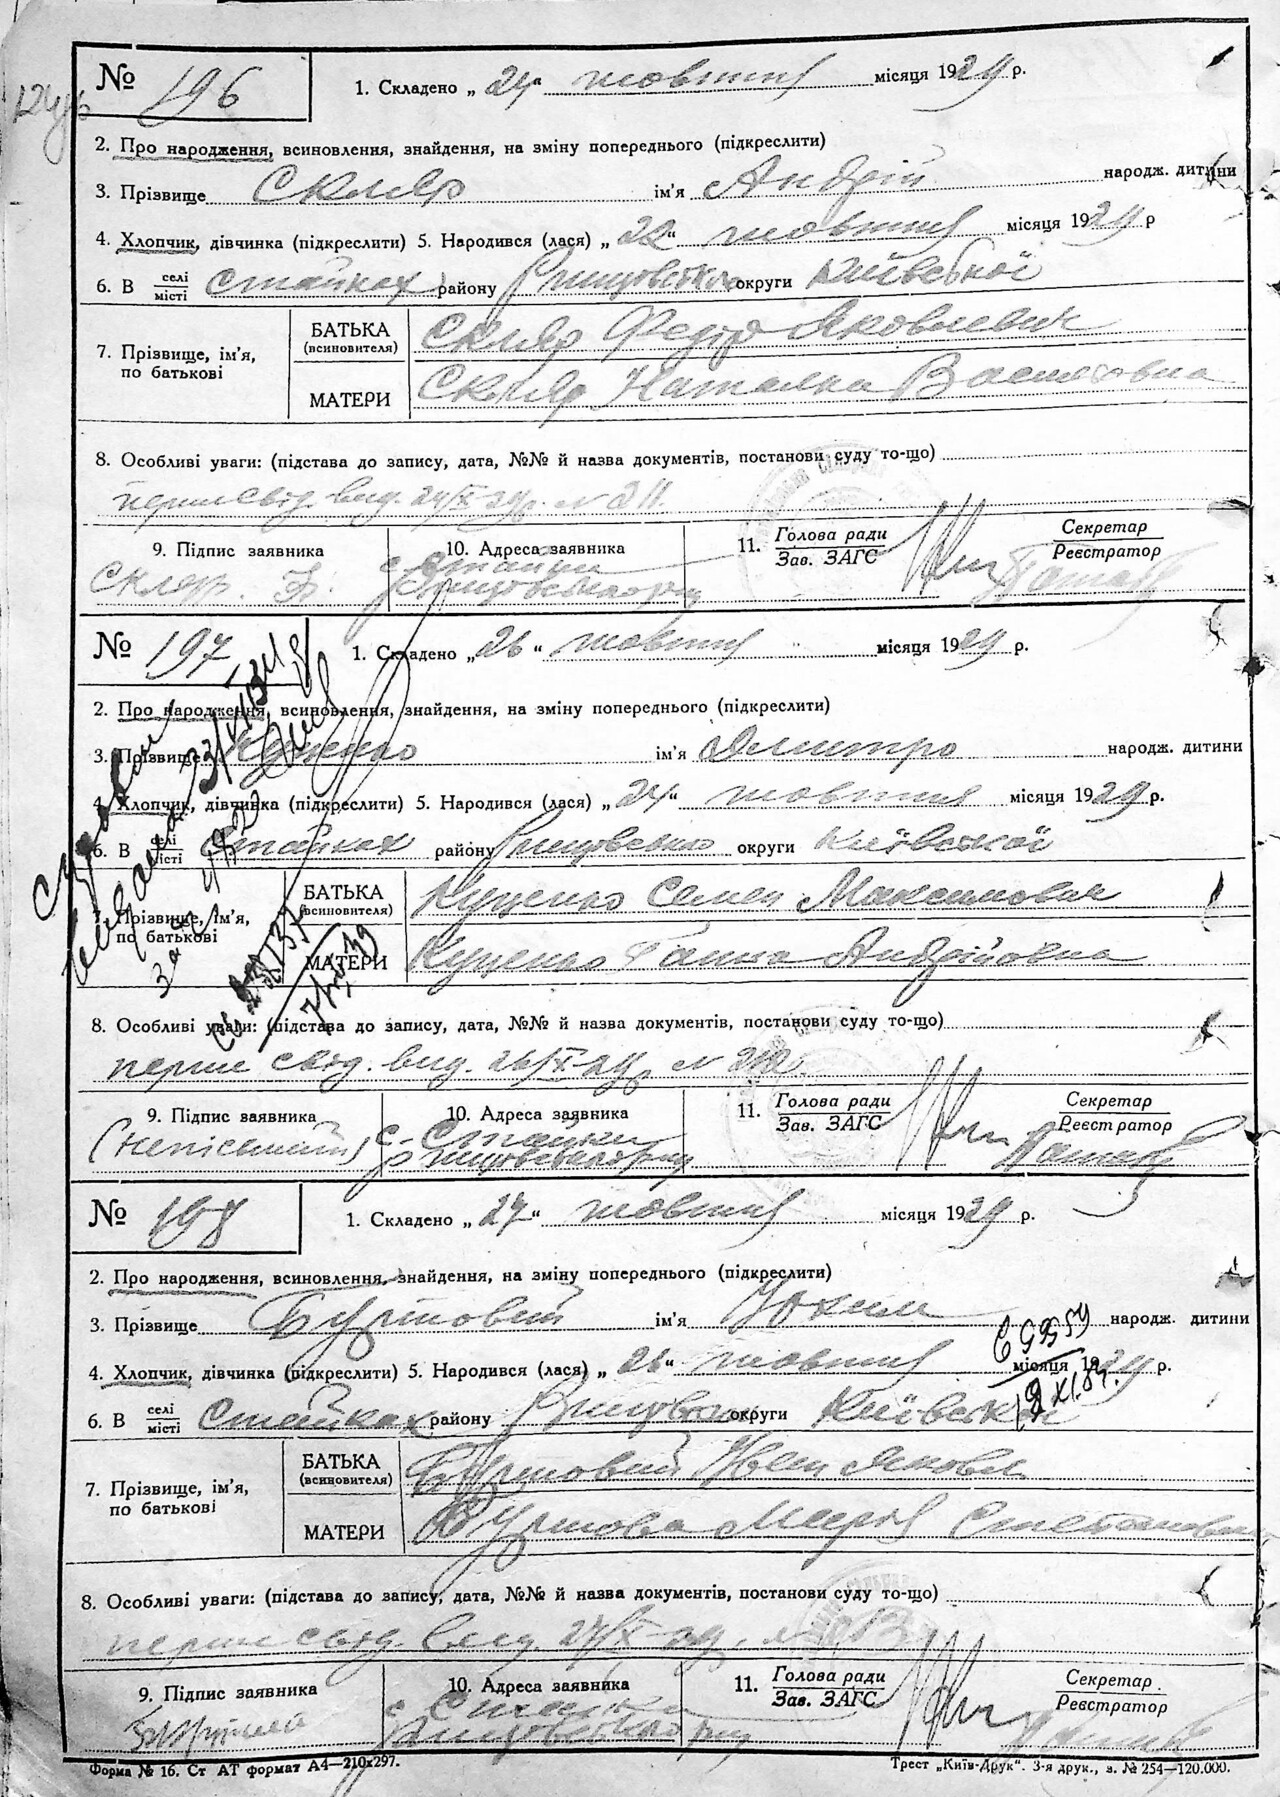 № 196 1. Складено „ 24 “ жовтня місяця 1929 р.
2. Про народження, всиновлення, знайдення, на зміну попереднього (підкреслити)
3. Прізвище Скляр ім'я Андрій народж. дитини
4. Хлопчик, дівчинка (підкреслити) 5. Народився (лася) „ 22 “ жовтня місяця 1929 р
6. В селі/місті Стайках району Ржищовського округи Київської
7. Прізвище, ім'я, по батькові
БАТЬКА (всиновителя) Скляр Федір Яковлевич
МАТЕРИ Скляр Наталка Василівна
8. Особливі уваги: (підстава до запису, дата, №№ й назва документів, постанови суду то-що)
перше свід. вид. 24/X 29р. N 211.
9. Підпис заявника 10. Адреса заявника 11. Голова ради Секретар
Зав. ЗАГС Реєстратор
Скляр. Ф. с. Стайки
Ржищовського р-ну
№ 197 1. Складено „ 26 “ жовтня місяця 1929 р.
2. Про народження, всиновлення, знайдення, на зміну попереднього (підкреслити)
3. Прізвище Куценко ім'я Дмитро народж. дитини
4. Хлопчик, дівчинка (підкреслити) 5. Народився (лася) „ 24 “ жовтня місяця 1929 р.
6. В селі/місті Стайках району Ржищовського округи Київської
7. Прізвище, ім'я, по батькові
БАТЬКА (всиновителя) Куценко Семен Максимович
МАТЕРИ Куценко Ганна Андріївна
8. Особливі уваги: (підстава до запису, дата, №№ й назва документів, постанови суду то-що)
перше свід. вид. 26/X 29р. N 212.
9. Підпис заявника 10. Адреса заявника 11. Голова ради Секретар
Зав. ЗАГС Реєстратор
(неписьмений) с. Стайки
Ржищовського р-ну
№ 198 1. Складено „ 27 “ жовтня місяця 1929 р.
2. Про народження, всиновлення, знайдення, на зміну попереднього (підкреслити)
3. Прізвище Буртовий ім'я Юхим народж. дитини
4. Хлопчик, дівчинка (підкреслити) 5. Народився (лася) „ 26 “ жовтня місяця 1929 р.
6. В селі/місті Стайках району Ржищовського округи Київської
7. Прізвище, ім'я, по батькові
БАТЬКА (всиновителя) Буртовий Яковл.
МАТЕРИ Буртова Марія Степановна
8. Особливі уваги: (підстава до запису, дата, №№ й назва документів, постанови суду то-що)
перше свід. вид. 27/X 29р. N 213
9. Підпис заявника 10. Адреса заявника 11. Голова ради Секретар
Зав. ЗАГС Реєстратор
с. Стайки
Ржищовського р-ну
Форма № 16. Ст АТ формат А4—210х297. Трест „Київ-Друк“. 3-я друк., з. № 254—120.000.